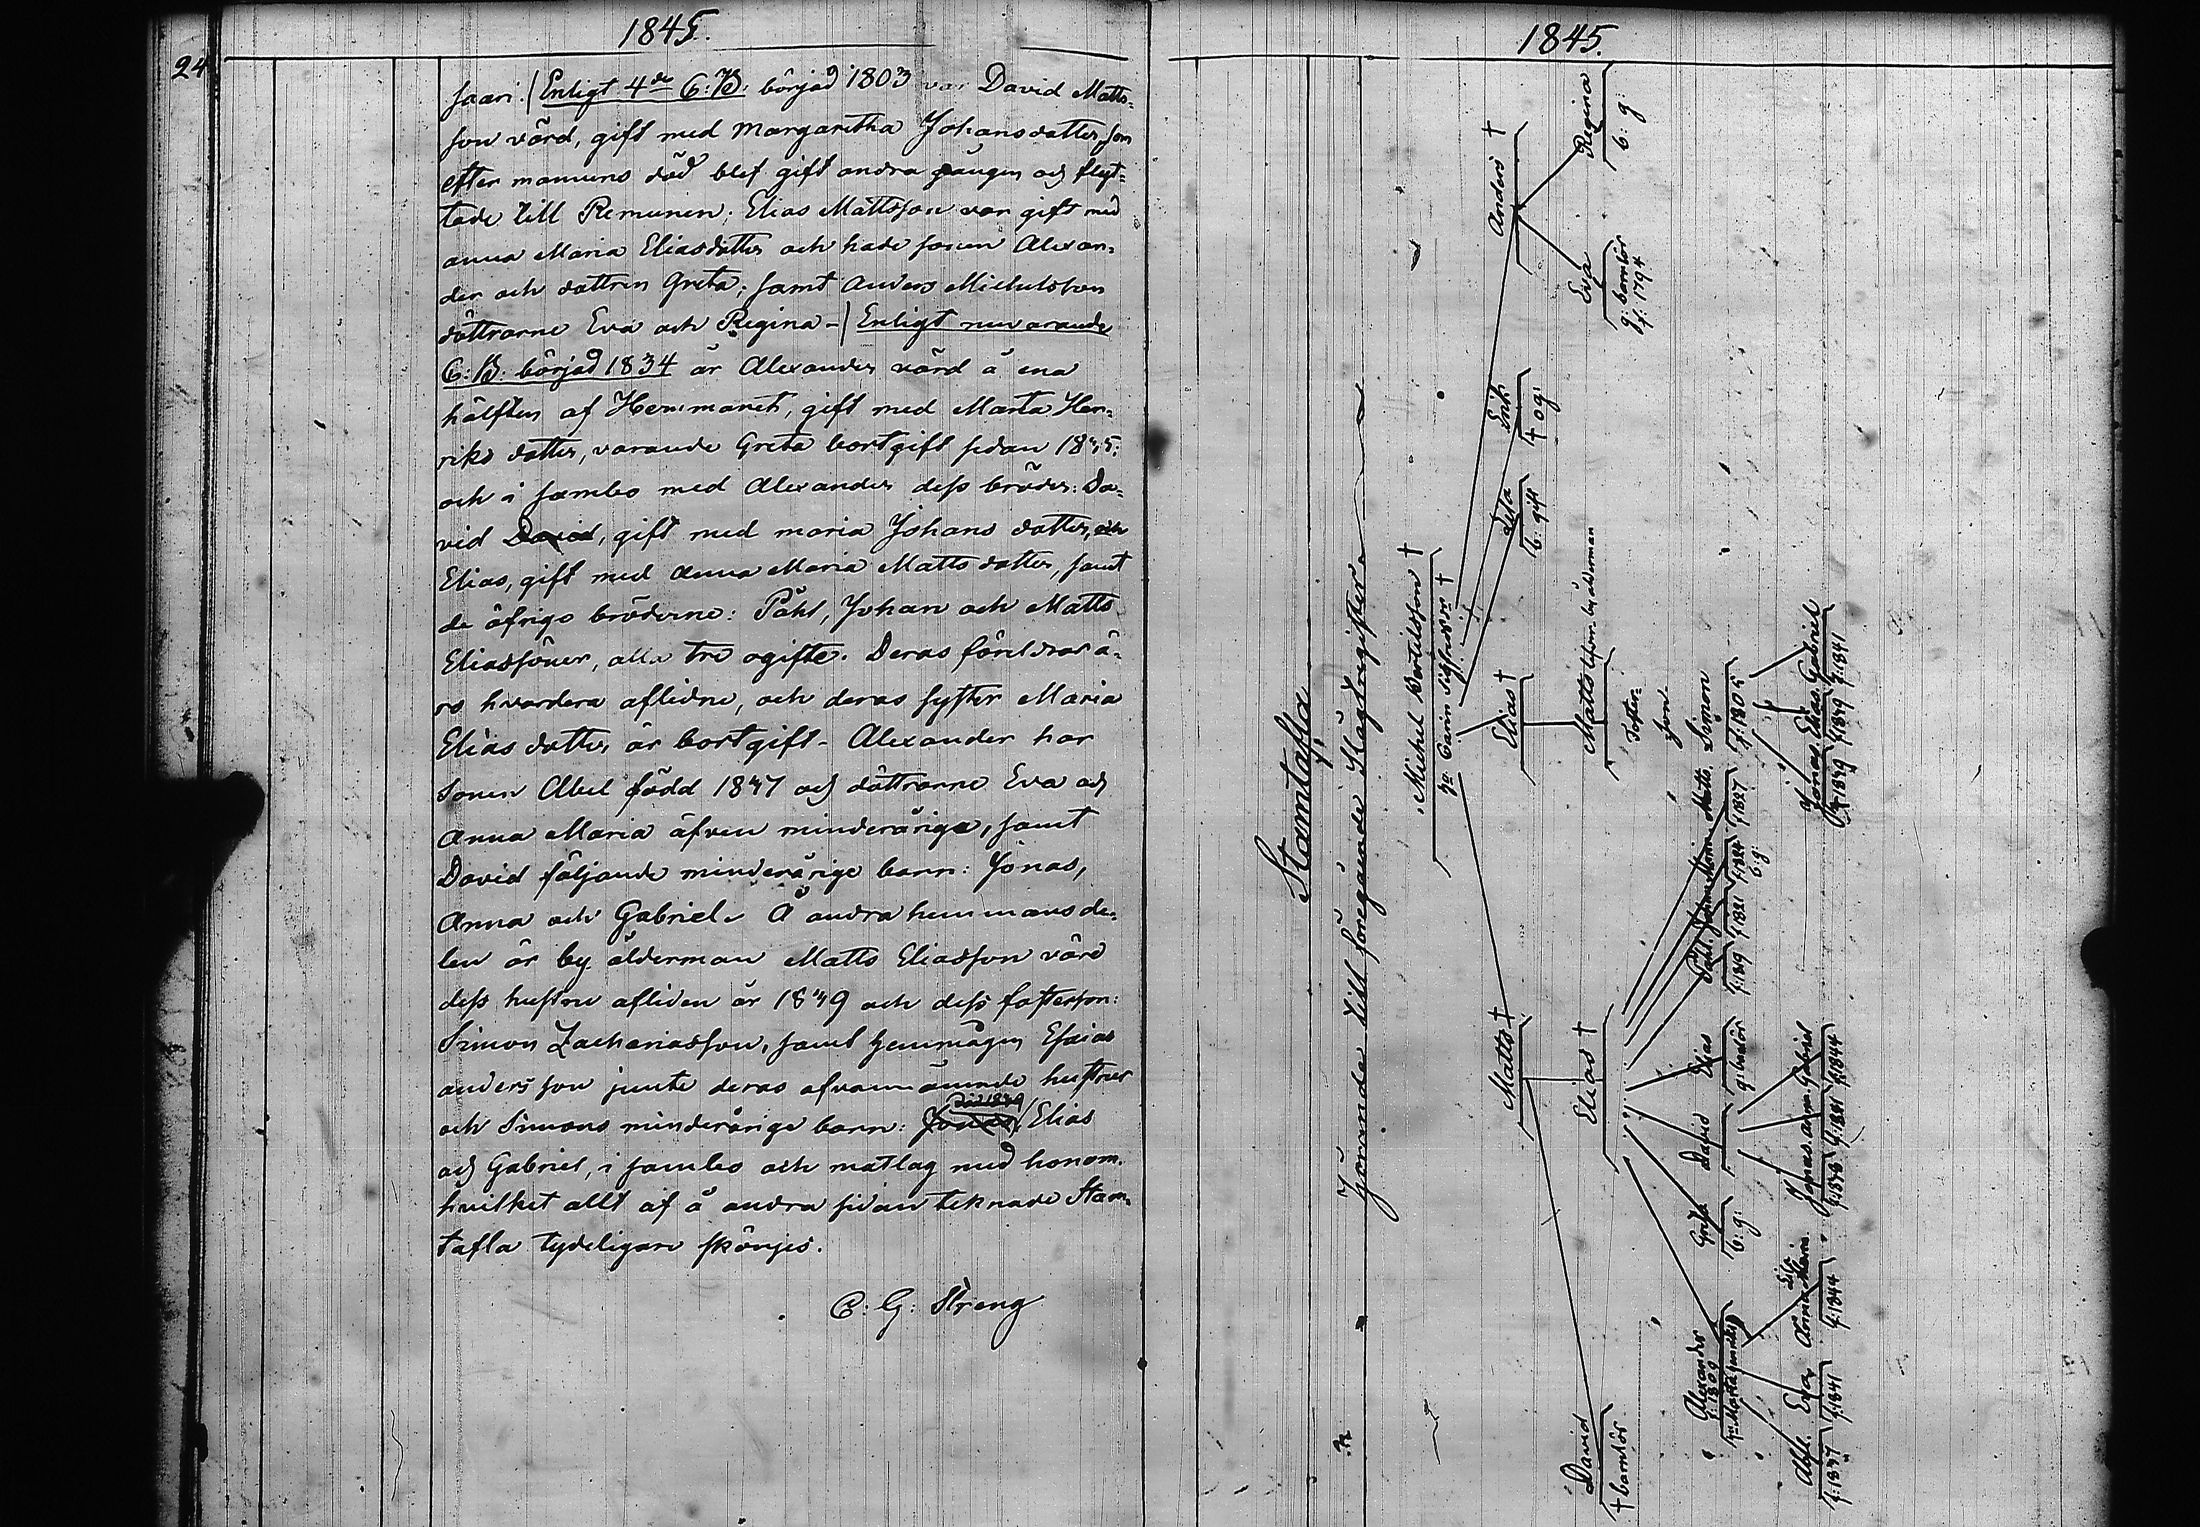 24
1845.
saari. / Enligt 4de C:B: börjad 1803 var David Matts-
son vård, gift med Margaretha Johansdotter, som
efter mannens död blef gift andra gången och flyt-
tade till Remunen; Elias Mattsson var gift med
Anna Maria Eliasdotter och hade sonen Alexan-
der och dottren Greta; samt Anders Michelsson
döttrarne Eva och Regina - / Enligt nuvarande
C:B: börjad 1834 är Alexander vård å ena
hälften af Hemmanet, gift med Marta Hen-
riks dotter, varande Greta bortgift sedan
och i sambo med Alexander dess bröder: Da-
vid David, gift med Maria Johans dotter, och
Elias, gift med Anna Maria Matts dotter, samt
de öfrige bröderne: Påhl, Johan och Matts
Eliassöner, alla tre ogifte. Deras föräldrar ä-
ro hvardera aflidne, och deras syster Maria
Elias dotter är bortgift - Alexander har
sonen Abel född 1837 och döttrarne Eva och
Anna Maria äfven minderåriga, samt
David följande minderårige barn: Jonas,
Anna och Gabriel. Å andra hemmansde-
len är by ålderman Matts Eliasson vård
dess hustru afliden år 1839 och dess fosterson:
Simon Zachariasson, samt hemmågen Esaias
Andersson jemte deras ofvannämnde hustrur
död 1839
och Simons minderårige barn: Jonas / Elias
och Gabriel, i sambo och matlag med honom.
hvilket allt af å andra sidan teknade Stam-
tafla tydeligare skönjes.
C: G: Streng
1845.
Stamtafla
hörande till föregående Slägtregister
Michel Bertilsson †
hu Carin Sigfredsdr †
Matts †
Elias †
Lisa
b: gift
Erich
† og:
Anders †
David
† barnlös
Elias †
Matts Eson. by ålderman
Foster-
son
Simon
f: 1805
Eva
g: barnlös
f: 1794
Regina
b: g:
Alexander
f: 1809
hu Marta Henriksdr
Greta
b: g:
David
Elias
g: barnlös
Påhl.
f: 1819
Johan
f: 1821
Maria
f: 1824
b: g:
Matts.
f: 1827
Abel.
f: 1837
Eva
f: 1841
Anna Maria.
f: 1844
Jonas
f: 1838
Anna
f: 1841
Gabriel
f: 1844
Jonas
Elias
f: 1839
Gabriel
f: 1841